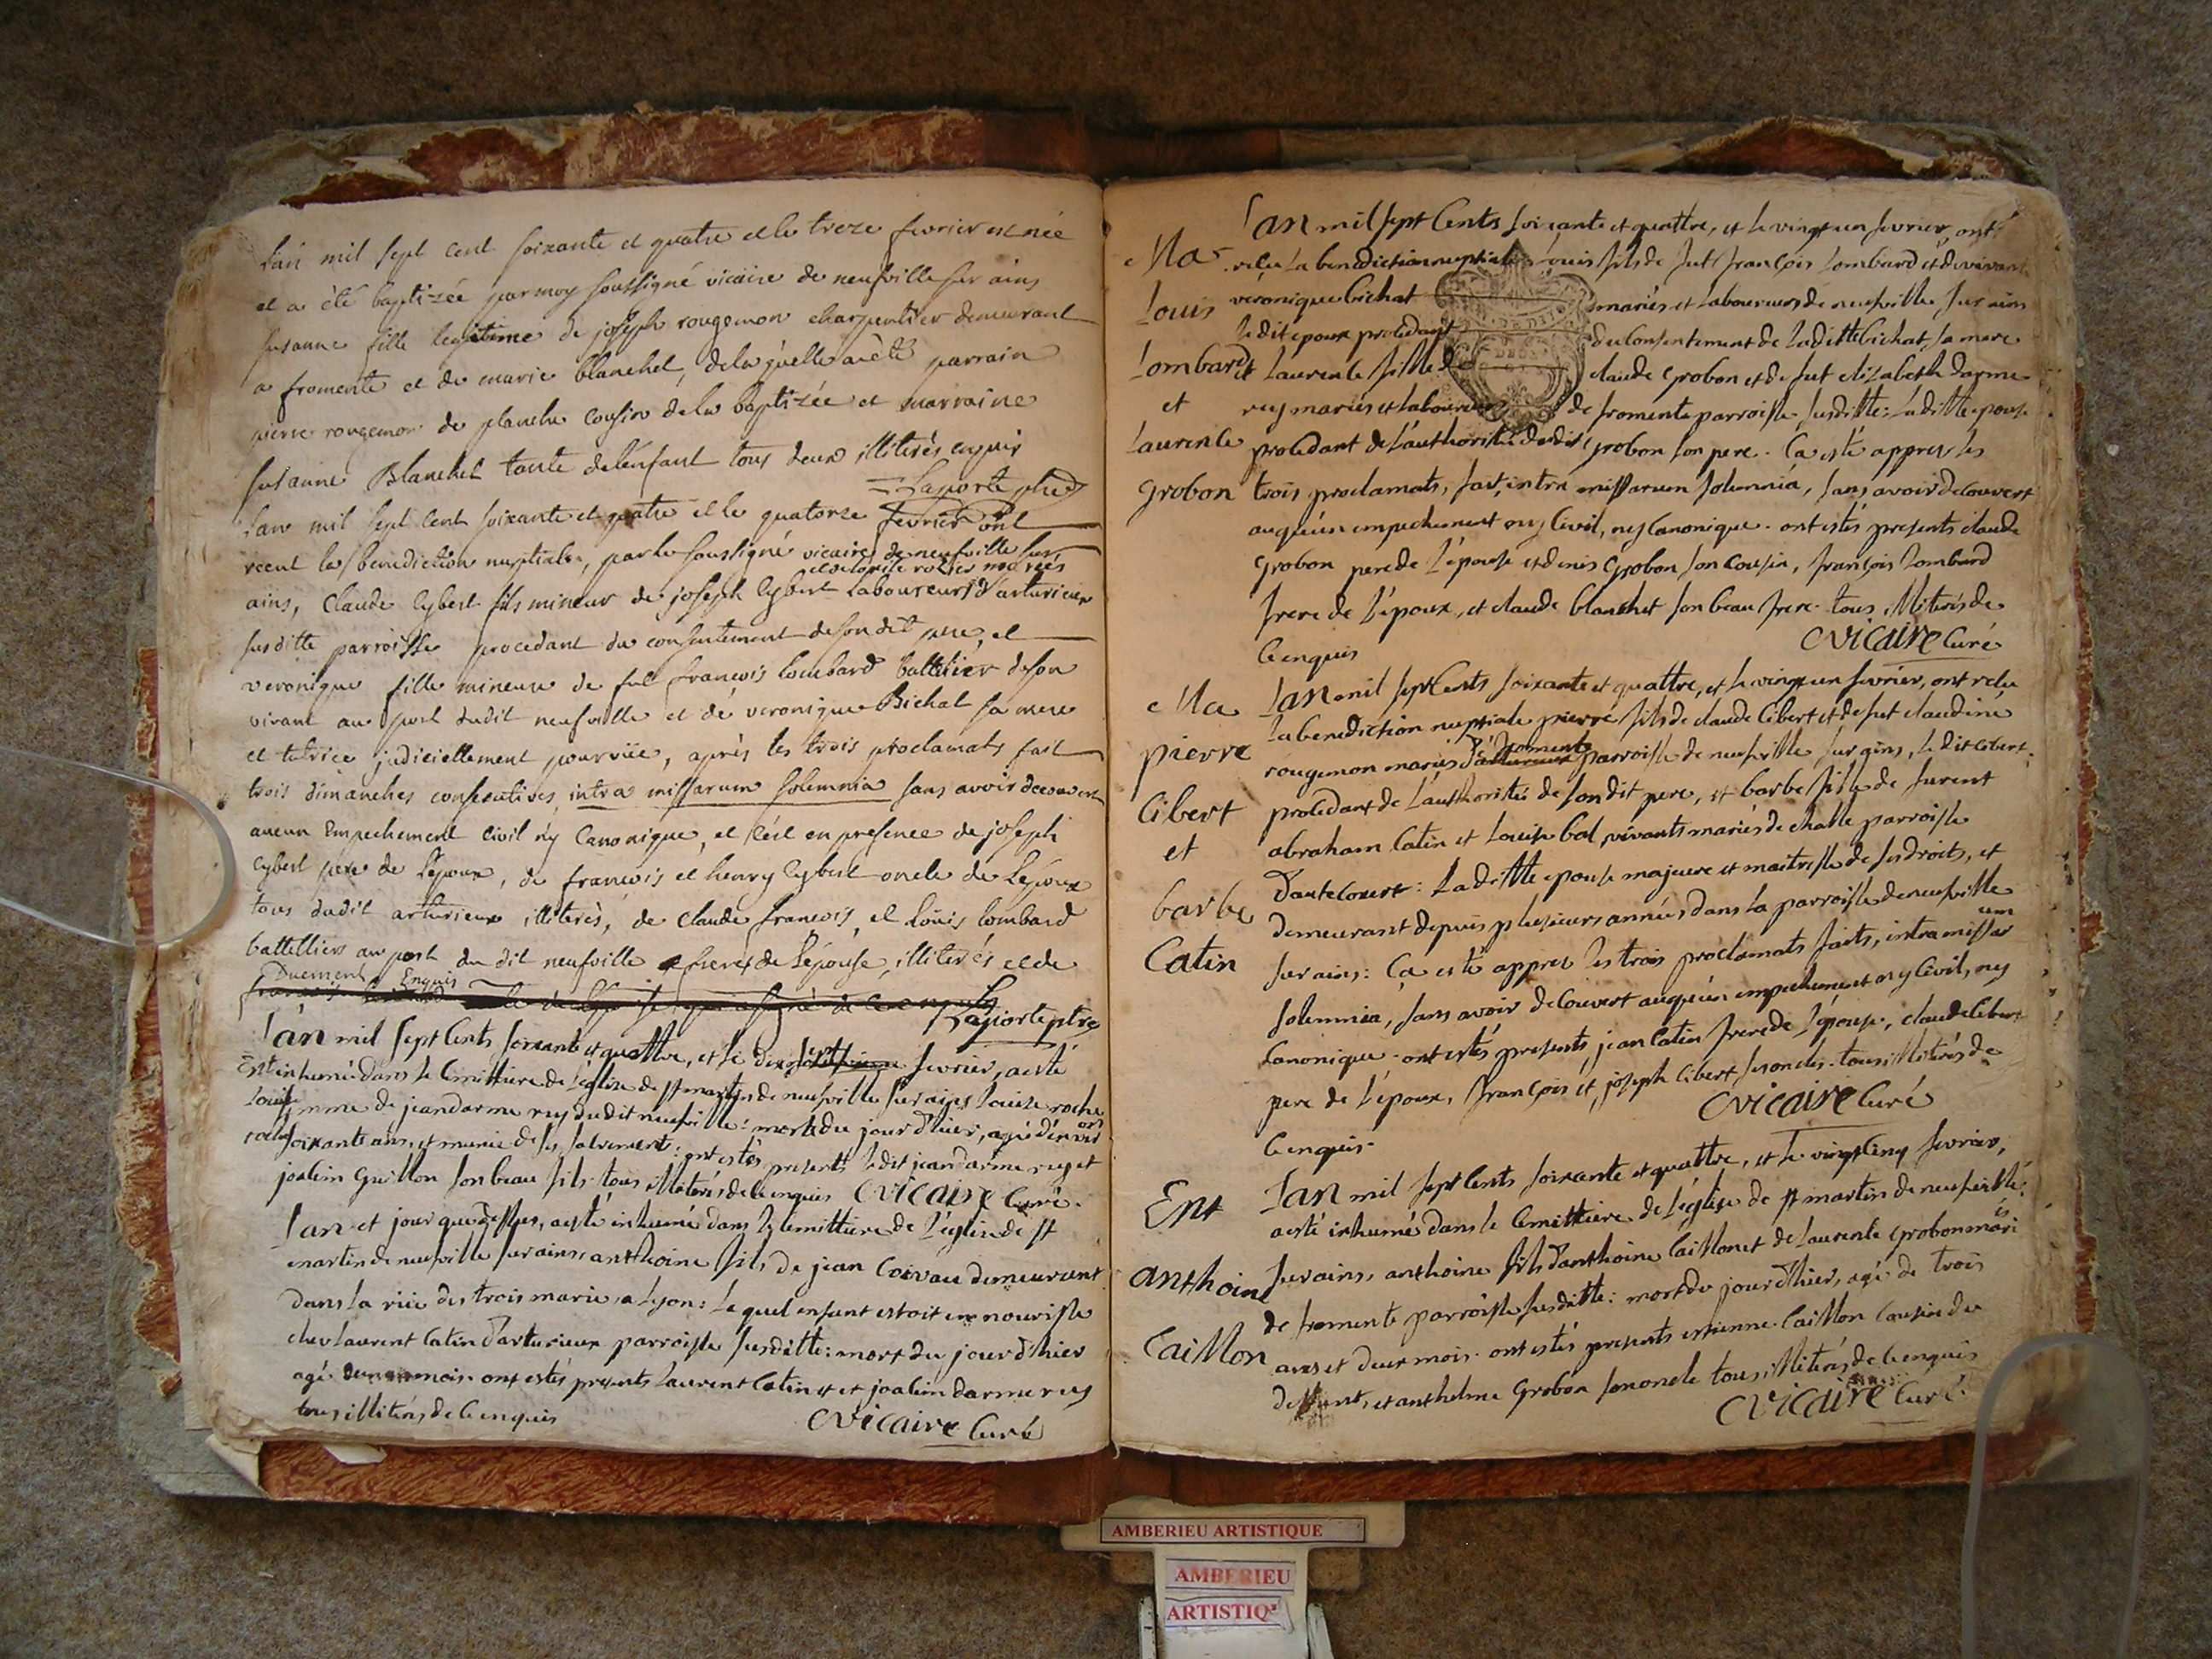 L'an mil sept cent soixante et quatre et le treze fevrier est née
et a été baptizée par moy soussigné vicaire de neufville sur ains
susanne fille legitime de joseph rougemon charpentier demeurant
a fromente et de marie blanchet, de laquelle a été parrain
pierre rougemon de planche cousin de la baptizée et marraine
susanne Blanchet tante de l'enfant tous deux illiterés enquis
Laporte ptre
L'an mil sept cent soixante et quatre et le quatorze fevrier ont
receut la benediction nuptiale, par le soussigné vicaire de neufville sur
ains, Claude Cybert fils mineur de joseph Cybert et de mariés Laboureurs d'arturieux
susditte parroisse procedant du consentement de son dit pere, et
veronique fille mineure de fut francois lombard battelier de son
vivant au port dudit neufville et de veronique Bichat sa mere
et tutrice judiciellement pourvüe, après les trois proclamats fait
trois dimanches consecutives intra missarum solemnia sans avoir decouvert
aucun Empechement civil n'y Canonique, et c'est en presence de joseph
Cybert pere de L'epoux, de francois et henry Cybert oncle de L'epoux
tous dudit arturieux illiterés, de Claude francois, et Loüis lombard
battelliers au port du dit neufville freres de L'épouse, illiterés et de
Duement Enquis
Laporte ptre
L'an mil sept Cents soixante et quattre, et le dixsept fevrier, a esté
inhumé dans le Cemittiere de l'église de st martin de neufville sur ains Louise roche
femme de jean darme rey dudit neufville: morte du jour d'hier, agé d'environ
soixante ans, et munie de ses sacrements: ont estés presents ledit jean darme rey et
joachim Guillon son beau fils tous illiterés de Ce enquis Cvicaire Curé.
L'an et jour que dessus, a esté inhumé dans le Cemittiere de L'église de st
martin de neufville sur ains, anthoine fils de jean Coivau demeurant
dans la rüe des trois maries a Lyon: Lequel enfant estoit en nourisse
chez Laurent Catin d'arturieux parroisse susditte: mort du jour d'hier
agé mois. ont estés presents Laurent Catin et joachim darme rey
tous illiterés de Ce enquis Cvicaire Curé
Mar
Louis
Lombard
et
Laurence
Grobon
L'an mil sept Cents soixante et quattre, et le vingt un fevrier, ont
reçu La benediction nuptiale Louis fils de fut françois Lombard et de vivant
veronique bichat mariés et Laboureurs de neufville sur ains
le dit epoux procedant du Consentement de La ditte bichat sa mere
et Laurence fille de claude Grobon et de fut elizabeth darme
rey mariés et Laboureurs de fromente parroisse susditte: La ditte epouse
procedant de l'authorité du dit Grobon son pere. Ça esté appres les
trois proclamats, fait, intra missarum solemnia, sans avoir decouvert
auqu'un empechement ny Civil, ny Canonique. ont estés presents claude
Grobon pere de L'epouse et denis Grobon son Cousin, françois Lombard
frere de L'époux, et claude blanchet son beau frere. tous illiterés de
Ce enquis Cvicaire Curé
Ma
pierre
Cibert
et
barbe
Catin
L'an mil sept Cents soixante et quattre, et le vingt un fevrier, ont reçu
La benediction nuptiale pierre fils de claude Cibert et de fut claudine
rougemon mariés de fromente parroisse de neufville sur ains, le dit Cibert
procedant de L'authorités de son dit pere, et barbe fille de furent
abraham Catin et Louise bal, vivants mariés de challe parroisse
D'antecourt: La ditte epouse majeure et maitresse de ses droits, et
demeurant depuis plusieurs années dans la parroisse de neufville
sur ains: Ça esté appres les trois proclamats faits, intra missarum
solemnia, sans avoir decouvert auqu'un empechement ny Civil, ny
Canonique. ont estés presents jean Catin frere de L'épouse, claude Cibert
pere de L'époux, françois et joseph Cibert ses oncles. tous illiterés de
Ce enquis. Cvicaire Curé
Ent
anthoine
Caillon
L'an mil sept Cents soixante et quattre, et le vingt Cinq fevrier,
a esté inhumé dans le Cemittiere de L'église de st martin de neufville
sur ains, anthoine fils d'anthoine Caillon et de Laurence Grobon mariés
de fromente parroisse susditte: mort du jour d'hier, agé de trois
ans et deux mois. ont estés presents estienne Caillon Cousin du
deffunt, et anthelme Grobon son oncle tous illiterés de Ce enquis
Cvicaire Curé.
AMBERIEU ARTISTIQUE
AMBERIEU
ARTISTIQ